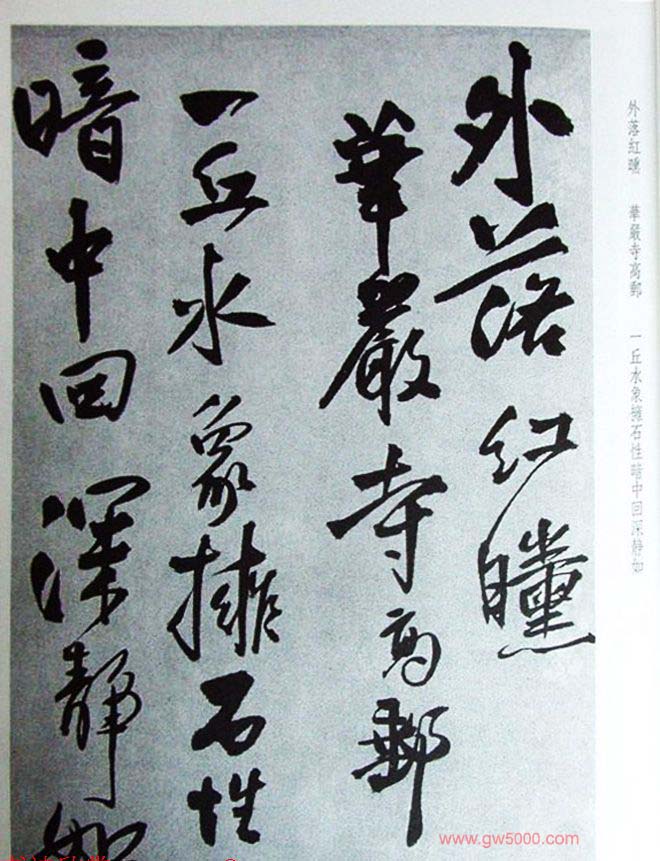 外落紅曛
華嚴寺高郵
一丘水象擁石性
暗中回深靜如
外落紅曛 華嚴寺高郵 一丘水象擁石性暗中回深靜如
www.gw5000.com